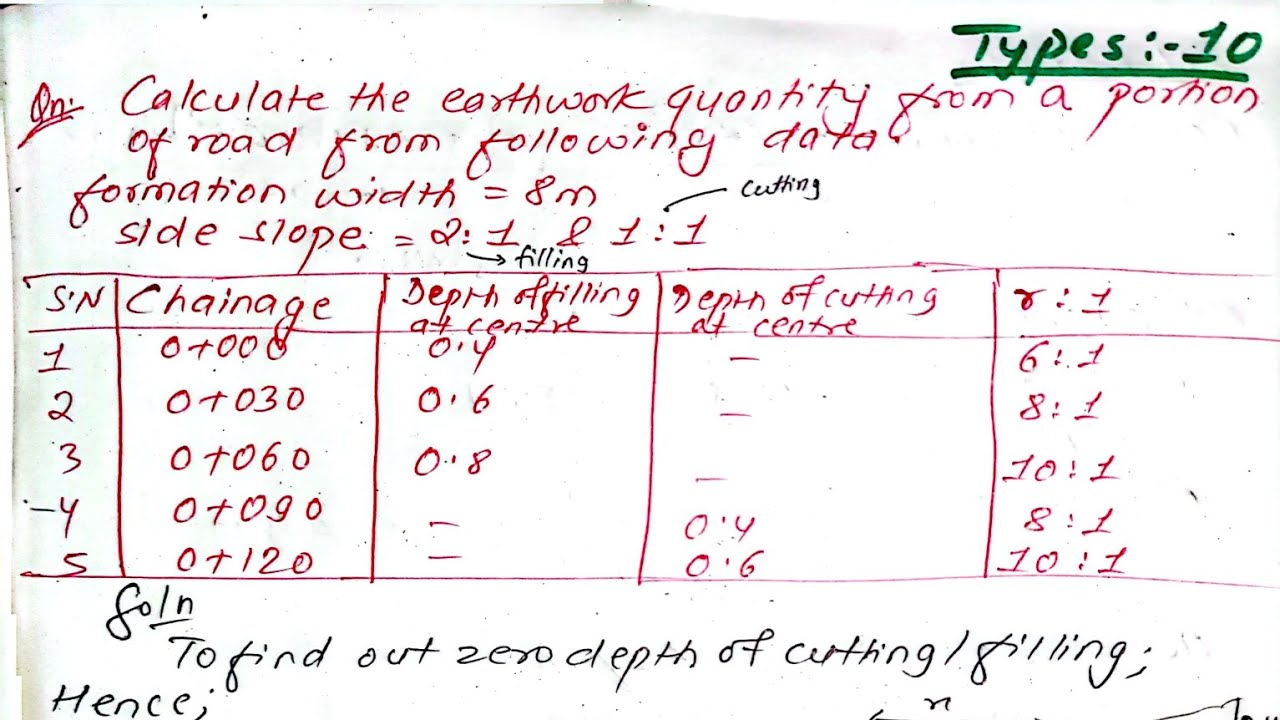 Types:-10
Qn: Calculate the earthwork quantity from a portion
of road from following data.
formation width = 8m
cutting
side slope = 2:1 & 1:1
filling
S.N Chainage Depth of filling at centre Depth of cutting at centre r:1
1 0+000 0.4 — 6:1
2 0+030 0.6 — 8:1
3 0+060 0.8 — 10:1
4 0+090 — 0.4 8:1
5 0+120 — 0.6 10:1
Soln
To find out zero depth of cutting/filling;
Hence;